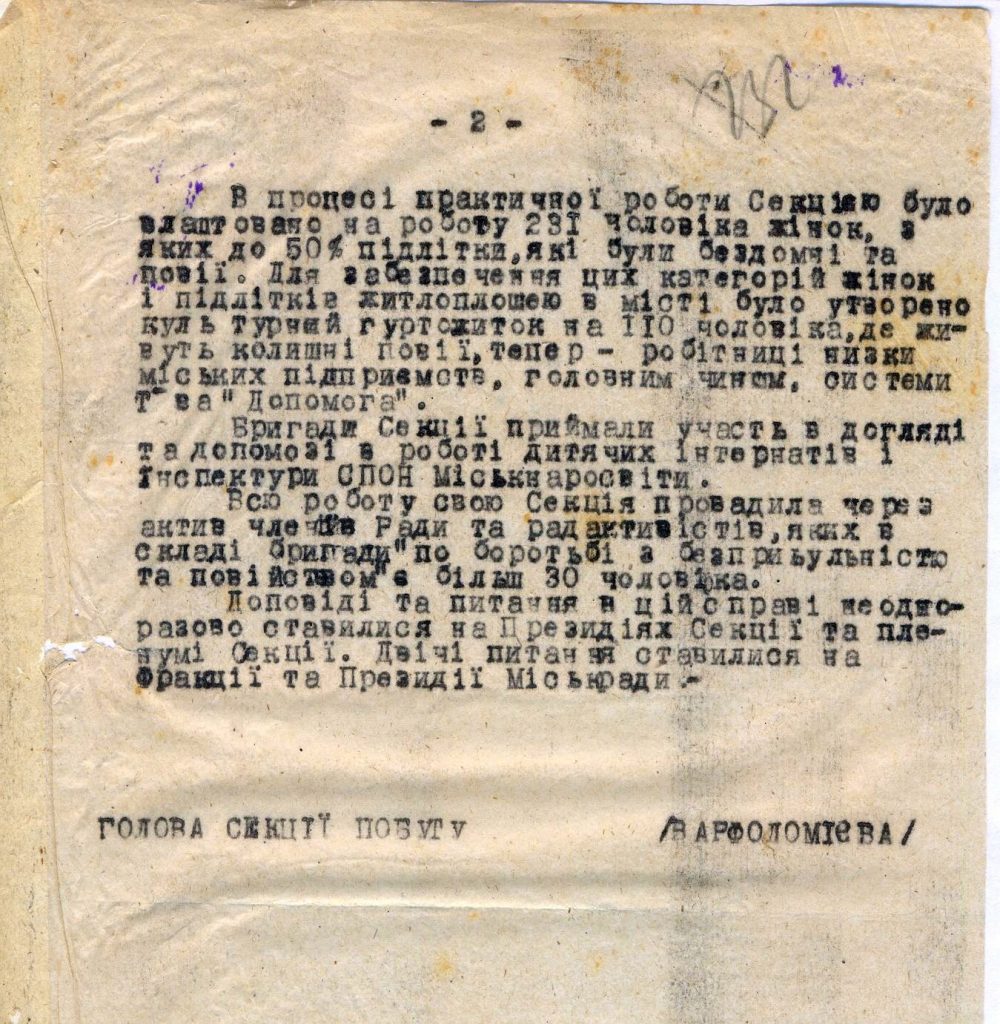 232
- 2 -
В процесі практичної роботи Секцією було
влаштовано на роботу 231 чоловіка жінок, з
яких до 50% підлітки,які були бездомні та
повії. Для забезпечення цих категорій жінок
і підлітків житлоплошею в місті було утворено
культурний гуртожиток на 110 чоловіка,де жи-
вуть колишні повії,тепер - робітниці низки
міських підприємств, головним чином, системи
т-ва "Допомога".
Бригади Секції приймали участь в догляді
та допомозі в роботі дитячих інтернатів і
інспектури СПОН Міськнаросвіти.
Всю роботу свою Секція провадила через
актив членів Ради та радактивістів,яких в
складі бригади"по боротьбі з безпритульністю
та повійством"є більш 30 чоловіка.
Доповіді та питання в цій справі неодно-
разово ставилися на Президіях Секції та пле-
нумі Секції. Двічі питання ставилися на
Фракції та Президії Міськради.-
ГОЛОВА СЕКЦІЇ ПОБУТУ /ВАРФОЛОМІЄВА/